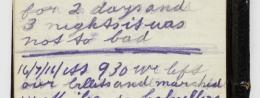 for 2 days and
3 nights it was
not to bad
16/7/16 ass 930 we left
our billets and marched